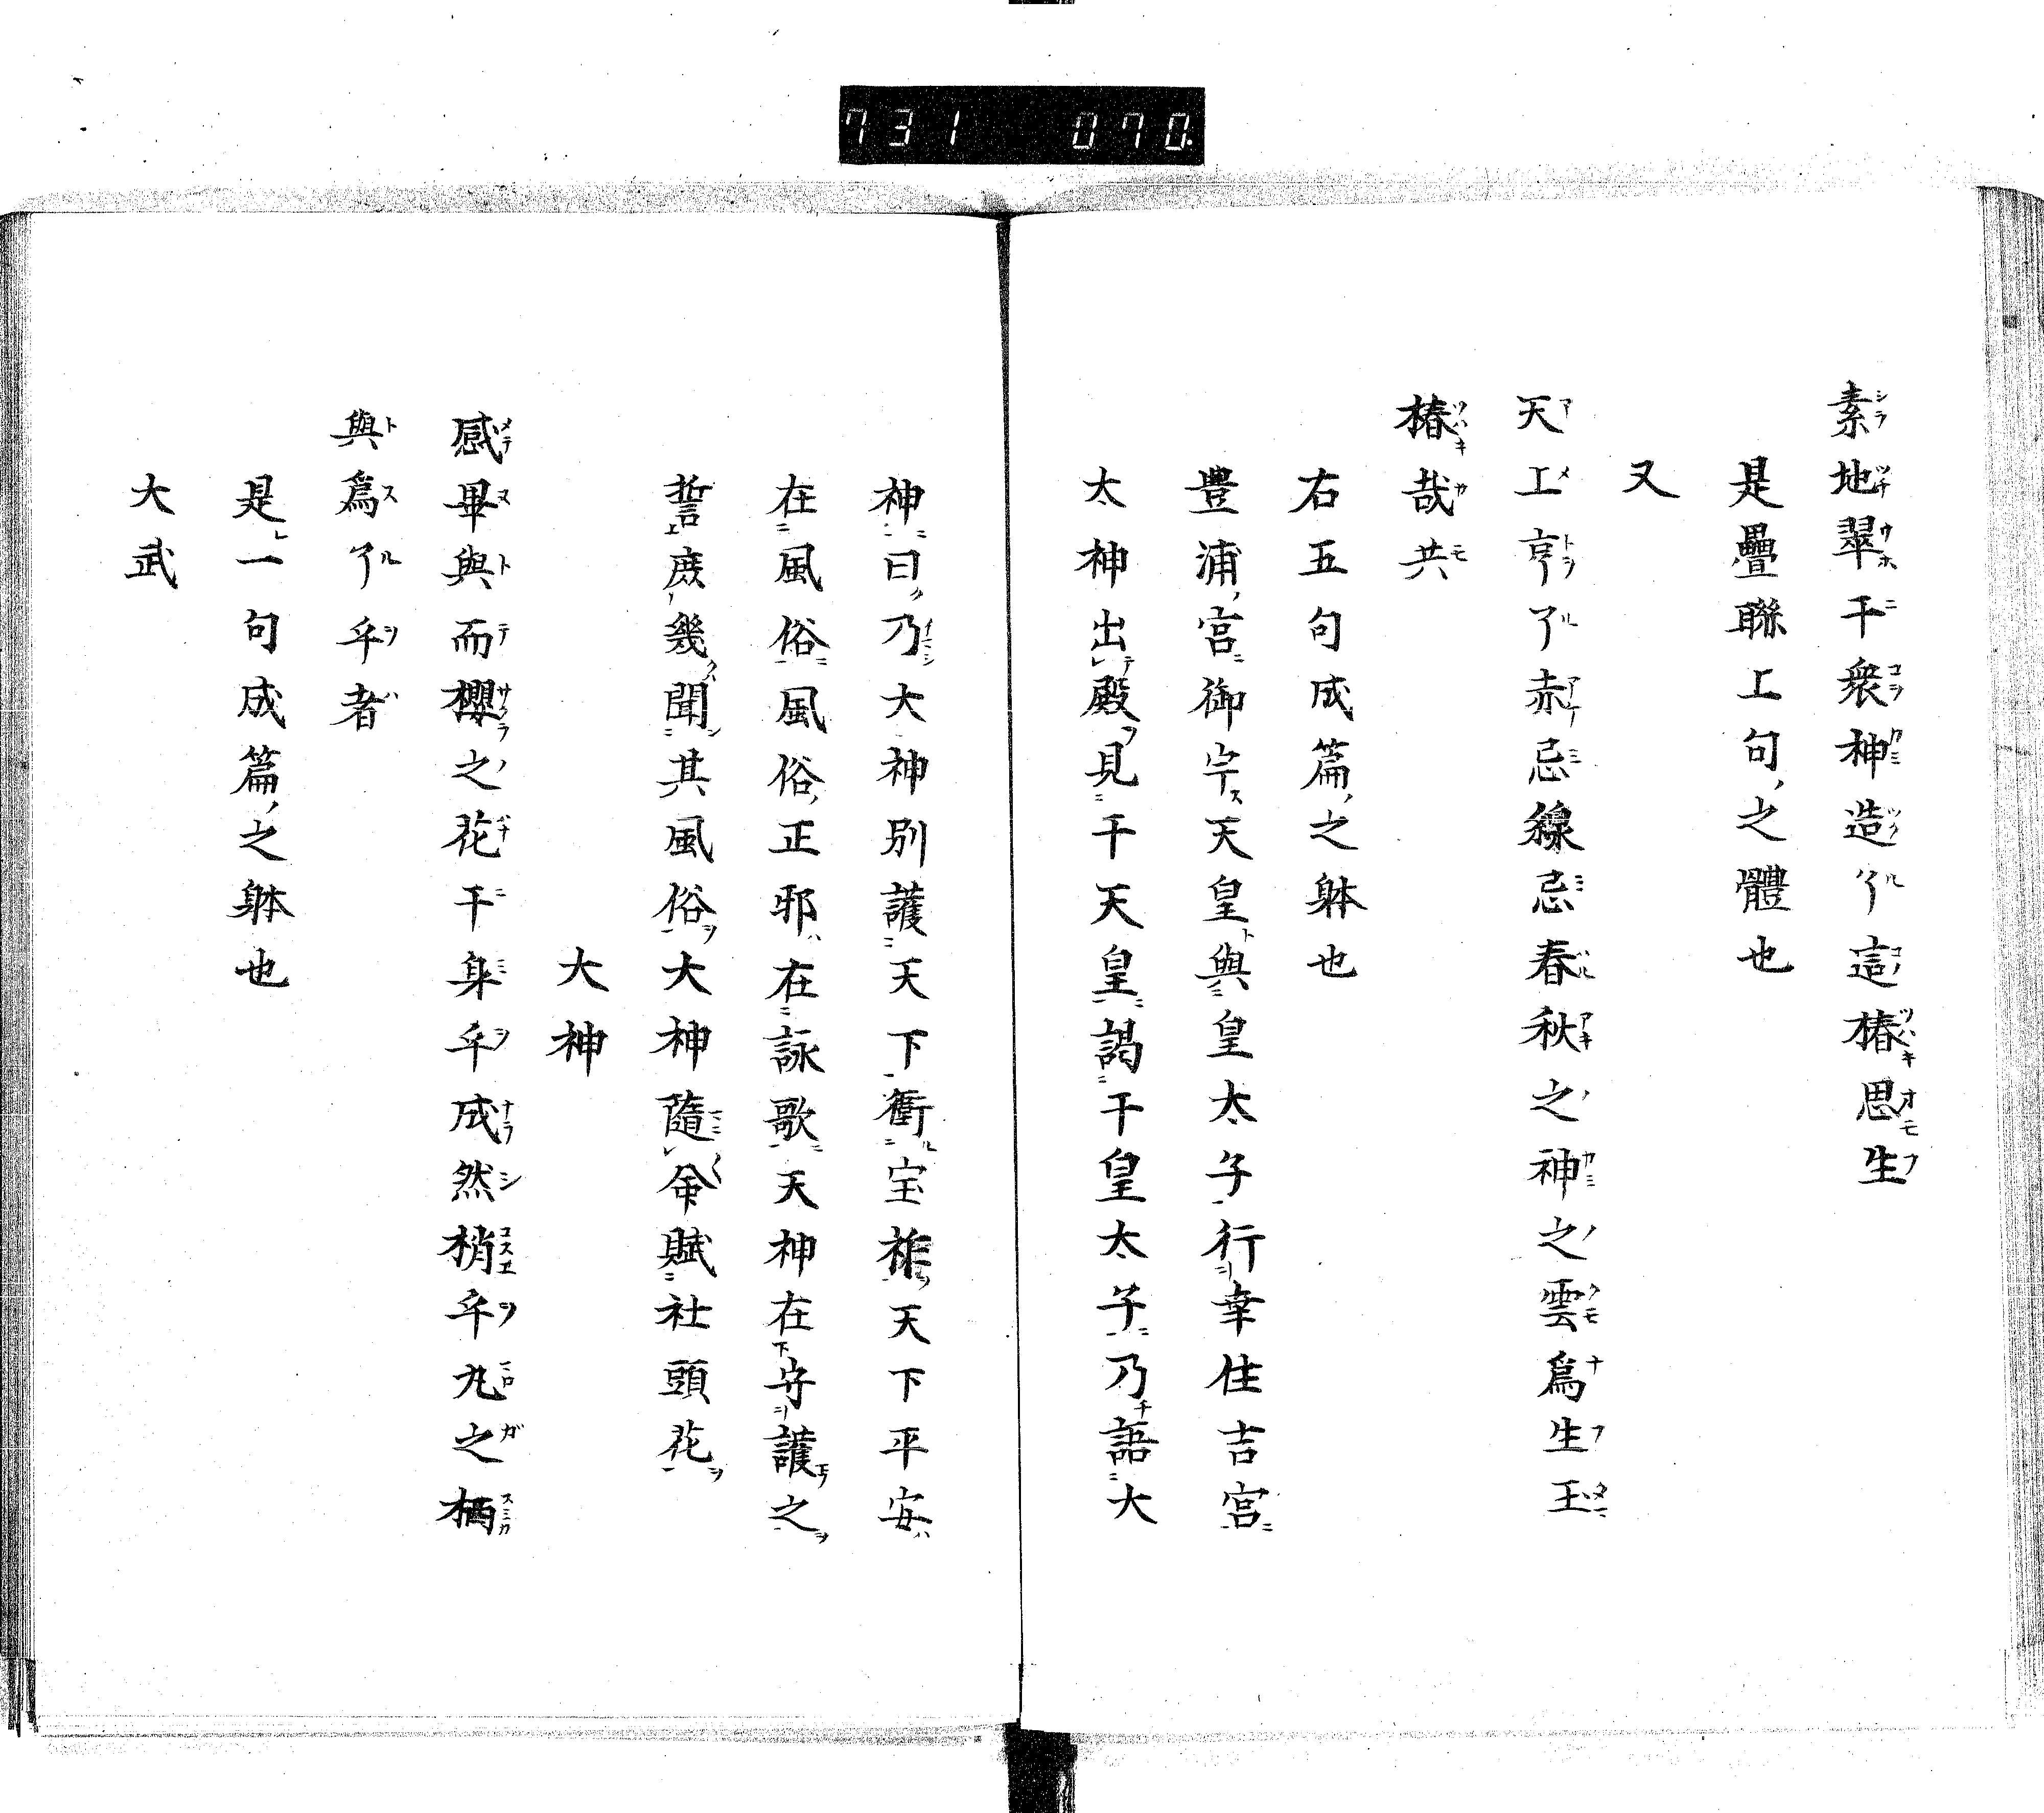 731 070.
素地翠干衆神造了這椿思生
是疊聯上句之體也
又
天工亨了赤忌線忌春秋之神之雲爲生王
椿哉共
右五句成篇之躰也
豊浦宮御宇天皇與皇太子行幸住吉宮
太神出殿見干天皇謁干皇太子乃語大
神曰乃大神別護天下衝宝祚天下平安
在風俗風俗正邪在詠歌天神在守護之
誓庻幾聞其風俗大神隨命賦社頭花
大神
感畢與而櫻之花干身乎成然梢乎丸之栖
與爲了乎者
是一句成篇之躰也
大武